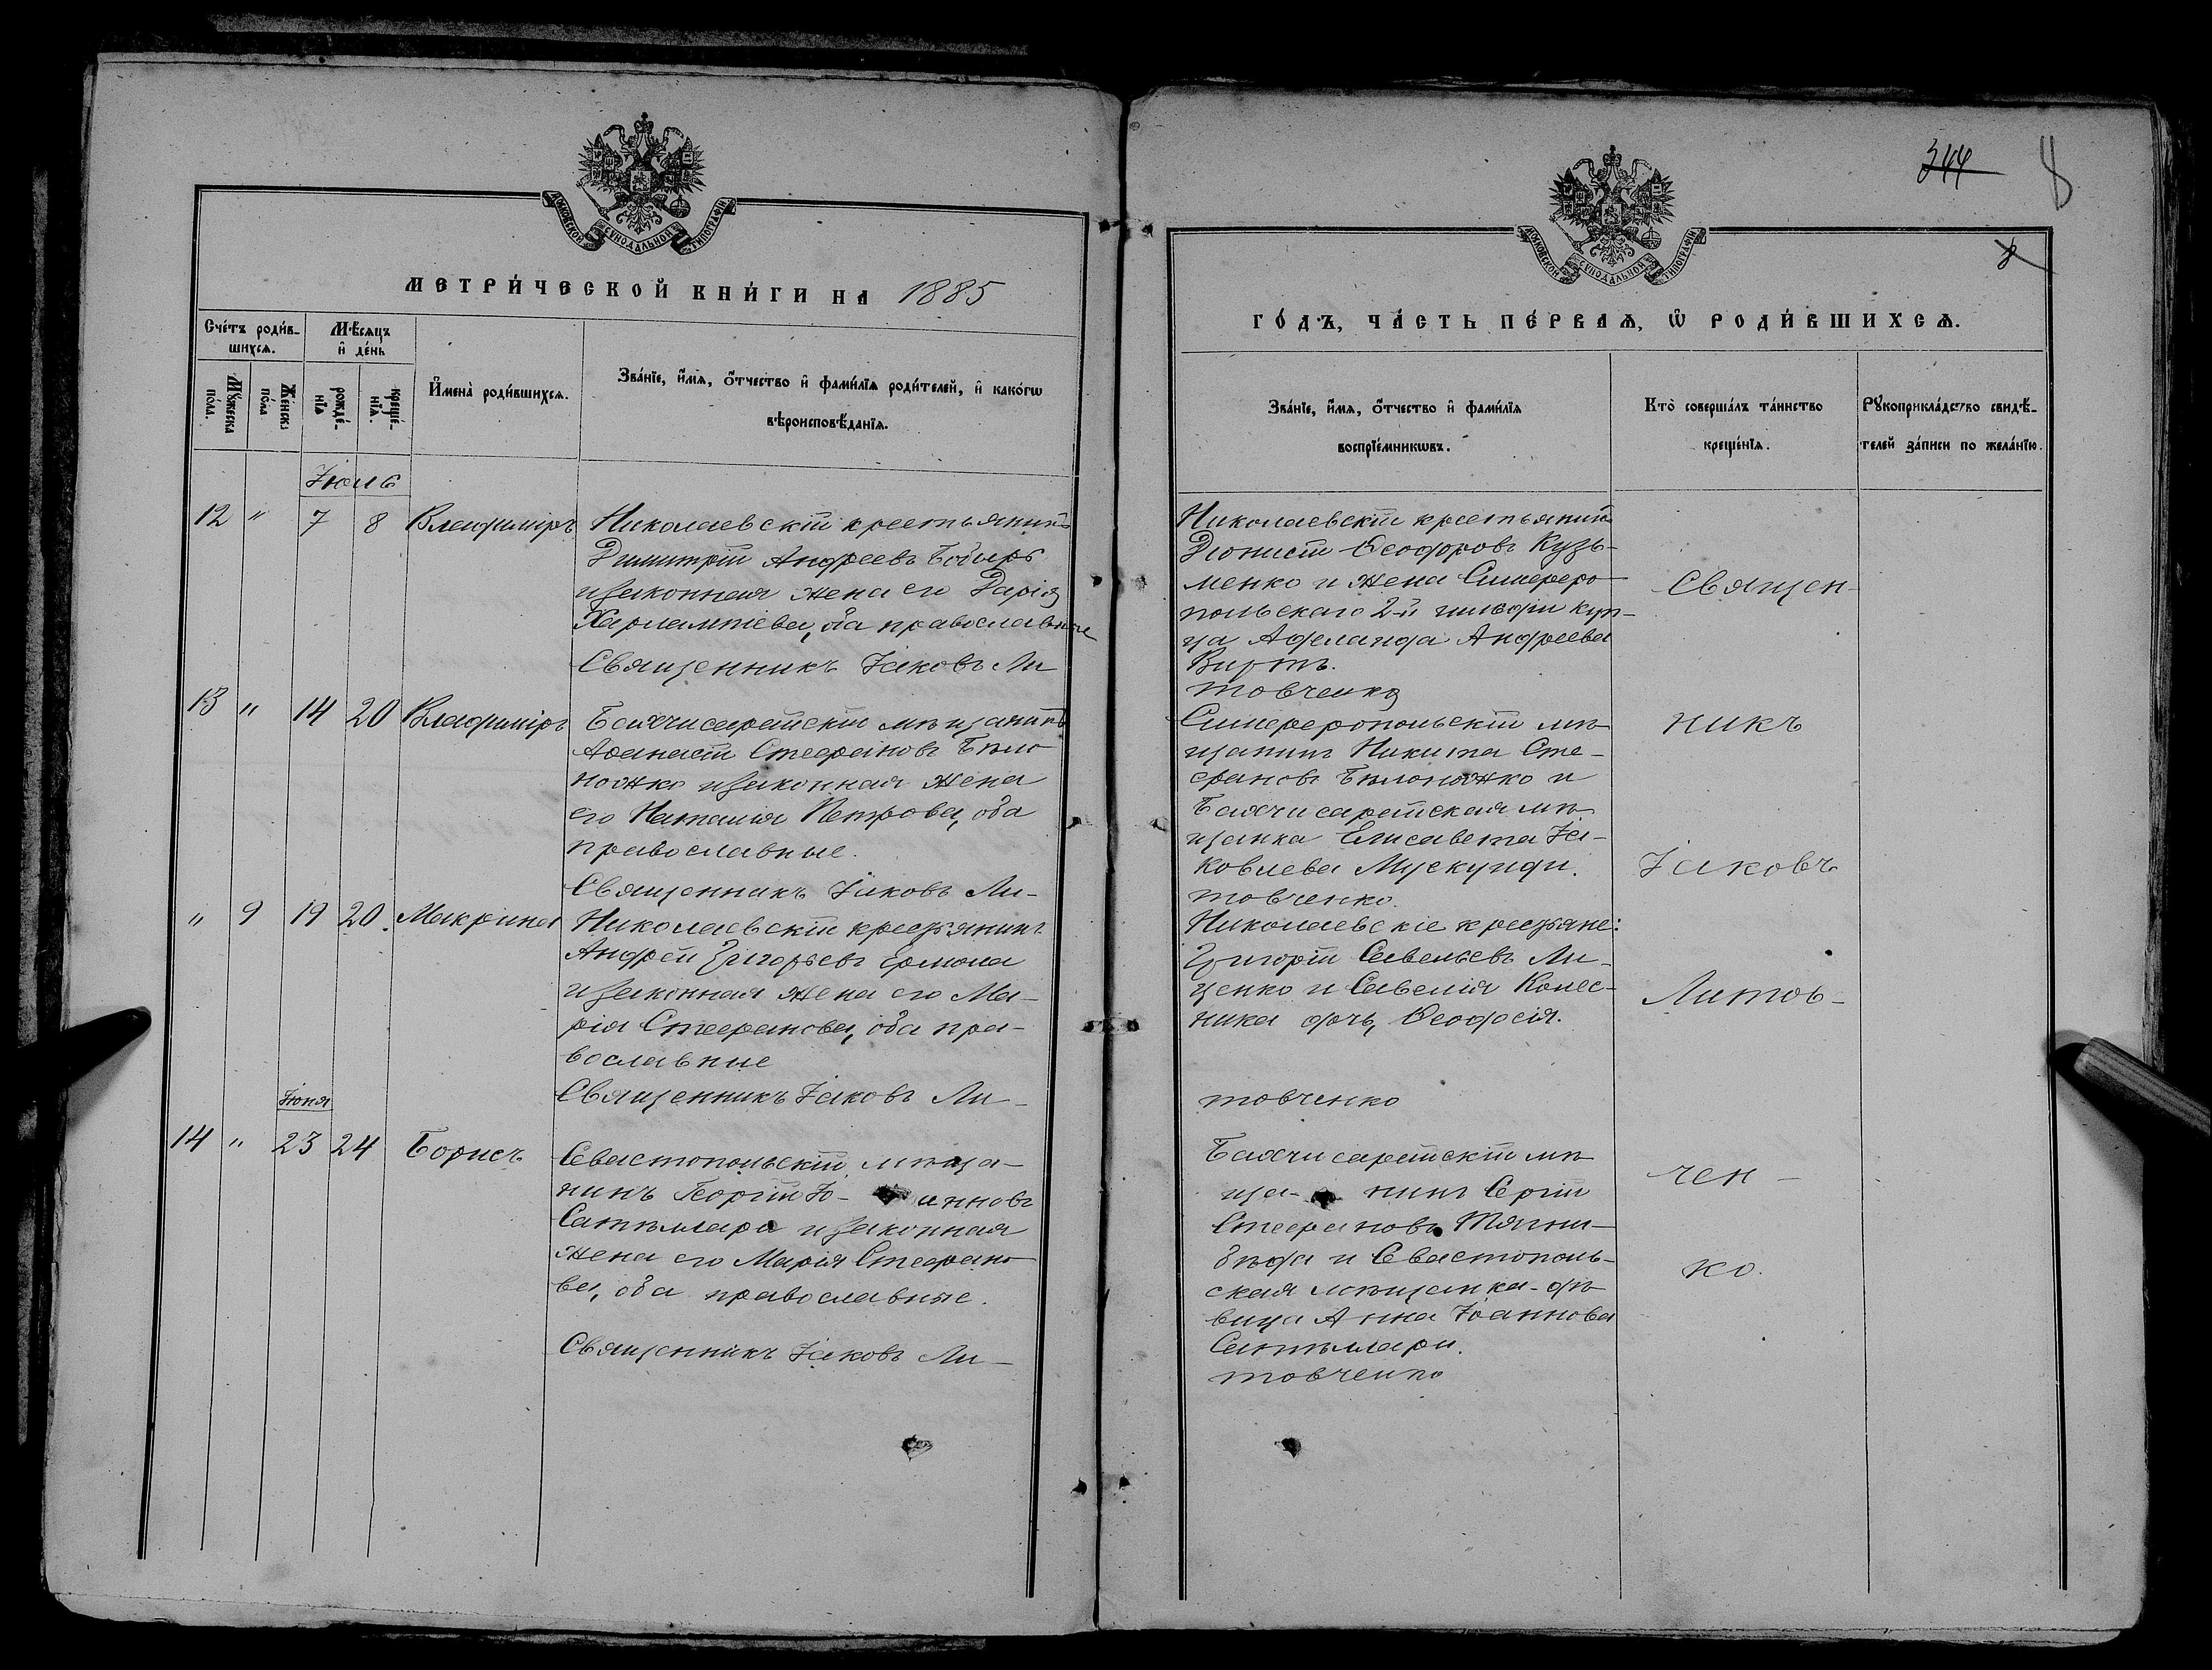 МОСКОВСКОЙ СѴНОДАЛЬНОЙ ТИПОГРАФІИ
МЕТРИ́ЧЕСКОЙ КНИ́ГИ НА 1885
Сче́тъ роди́в-
шихсѧ.
Мѣ́сѧцъ
и҆ де́нь
Мꙋ́жеска
по́ла.
Же́нска
по́ла
рожде́-
нїѧ
креще́-
нїѧ.
И҆мена̀ роди́вшихсѧ.
Зва́нїе, и҆́мѧ, ѻ҆́тчество и҆ фами́лїѧ роди́телей, и҆ како́гѡ
вѣроисповѣ́данїѧ.
Іюль
12 " 7 8 Владиміръ
Николаевскій крестьянинъ
Димитрій Андреевъ Бобырь
и законная жена его Дарія
Харлампіева, оба православные
Священникъ Іаковъ Ли
13 " 14 20 Владиміръ
Бахчисарайскій мѣщанинъ
Афанасій Стефановъ Бѣло
ножко и законная жена
его Наталія Петрова, оба
православные.
Священникъ Іаковъ Ли-
" 9 19 20. Макрина
Николаевскій крестьянинъ
Андрей Григорьевъ Ермола
и законная жена его Ма-
рія Стефанова, оба пра-
вославные
Священникъ Іаковъ Ли-
Іюня
14 " 23 24 Борисъ
Севастопольскій мѣща-
нинъ Георгій Іо- анновъ
и законная
жена его Марія Стефано
ва, оба православные.
Священникъ Іаковъ Ли-
344
8
8
МОСКОВСКОЙ СѴНОДАЛЬНОЙ ТИПОГРАФІИ
ГО́ДЪ, ЧА́СТЬ ПЕ́РВАѦ, Ѽ РОДИ́ВШИХСѦ.
Зва́нїе, и҆́мѧ, ѻ҆́тчество и҆ фами́лїѧ
воспрїе́мникѡвъ.
Кто̀ соверша́лъ та́инство
креще́нїѧ.
Рꙋкоприкла́дство свидѣ́-
телей за́писи по жела́нїю.
Николаевскій крестьянинъ
Діонисій Ѳеодоровъ Кузь-
менко и жена Симферо-
польскаго 2-й гильдіи куп-
ца Аделаида Андреева
товченко
Симферопольскій мѣ
щанинъ Никита Сте-
фановъ Бѣлоножко и
Бахчисарайская мѣ
щанка Елисавета Іа-
ковлева
товченко.
Николаевскіе крестьяне:
Григорій Савельевъ Ли-
ценко и Савелія Колес-
ника дочь, Ѳеодосія.
товченко
Бахчисарайскій мѣ
ща- нинъ Сергій
Стефановъ
и Севастополь-
ская мѣщанка-дѣ
вица Анна Іоаннова
товченко
Священ-
никъ
Іаковъ
Литов-
чен-
ко.